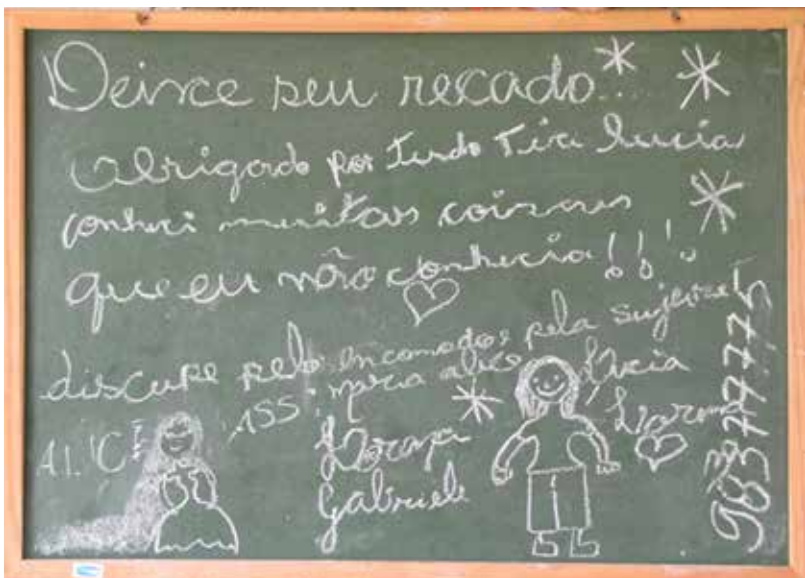 Deixe seu recado...
Obrigado por tudo Tia Lucia
conheci muitas coisas
que eu não conhecia!!!
discupe pelo encomodos pela sujeira!
ASS: maria alice Lúcia
ALICE
Lorena
Gabriele